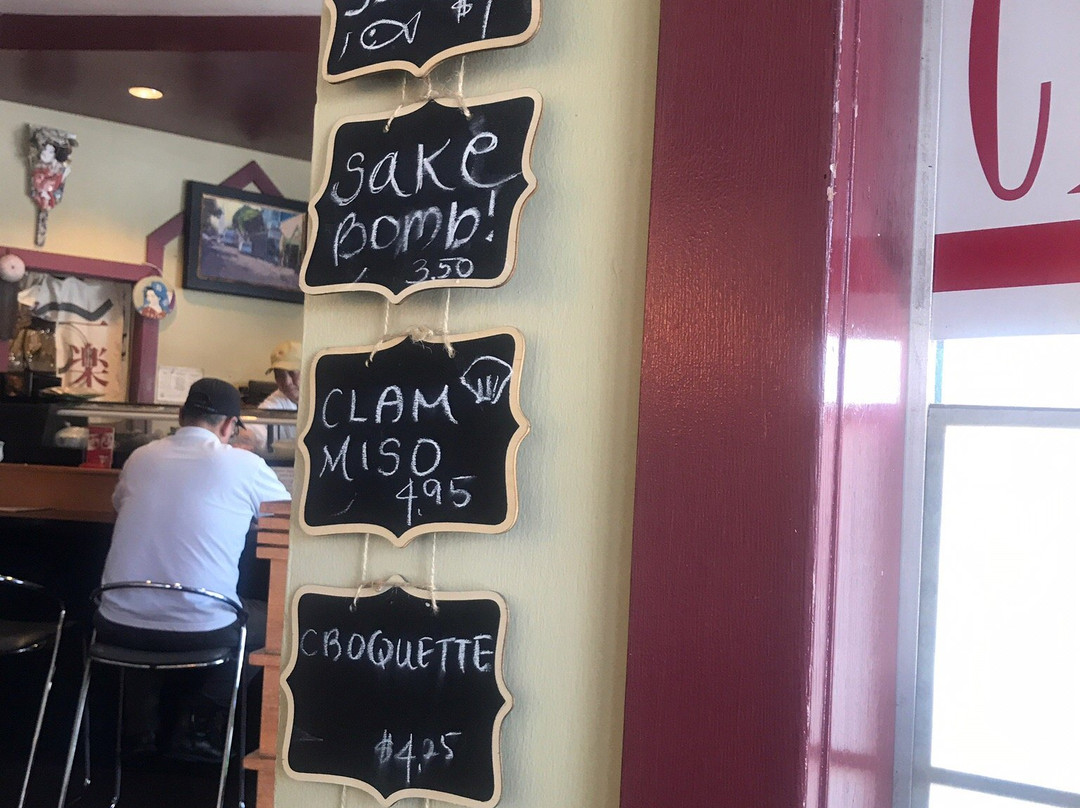 $7
Sake
Bomb!
3.50
CLAM
MISO
4.95
CROQUETTE
$4.25
一
楽